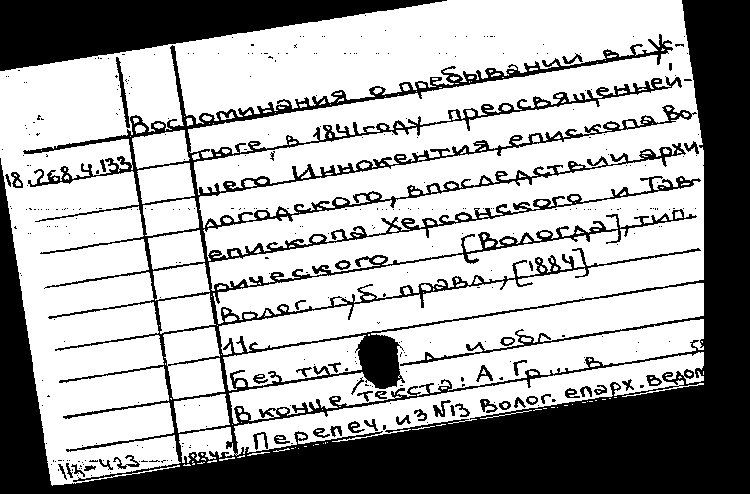 Воспоминания о пребывании в г. Ус-
тюге, в 1841 году преосвященней-
18.268.4.133
шего Иннокентия, епископа Во-
логодского, впоследствии архи-
епископа Херсонского и Тав-
рического. [Вологда], тип.
Волог. губ. правл., [1884].
11 с.
Без тит. л. и обл.
В конце текста: А. Гр... в.
"Перепеч. из №13 Волог. епарх. ведом
1884 г."
113-423